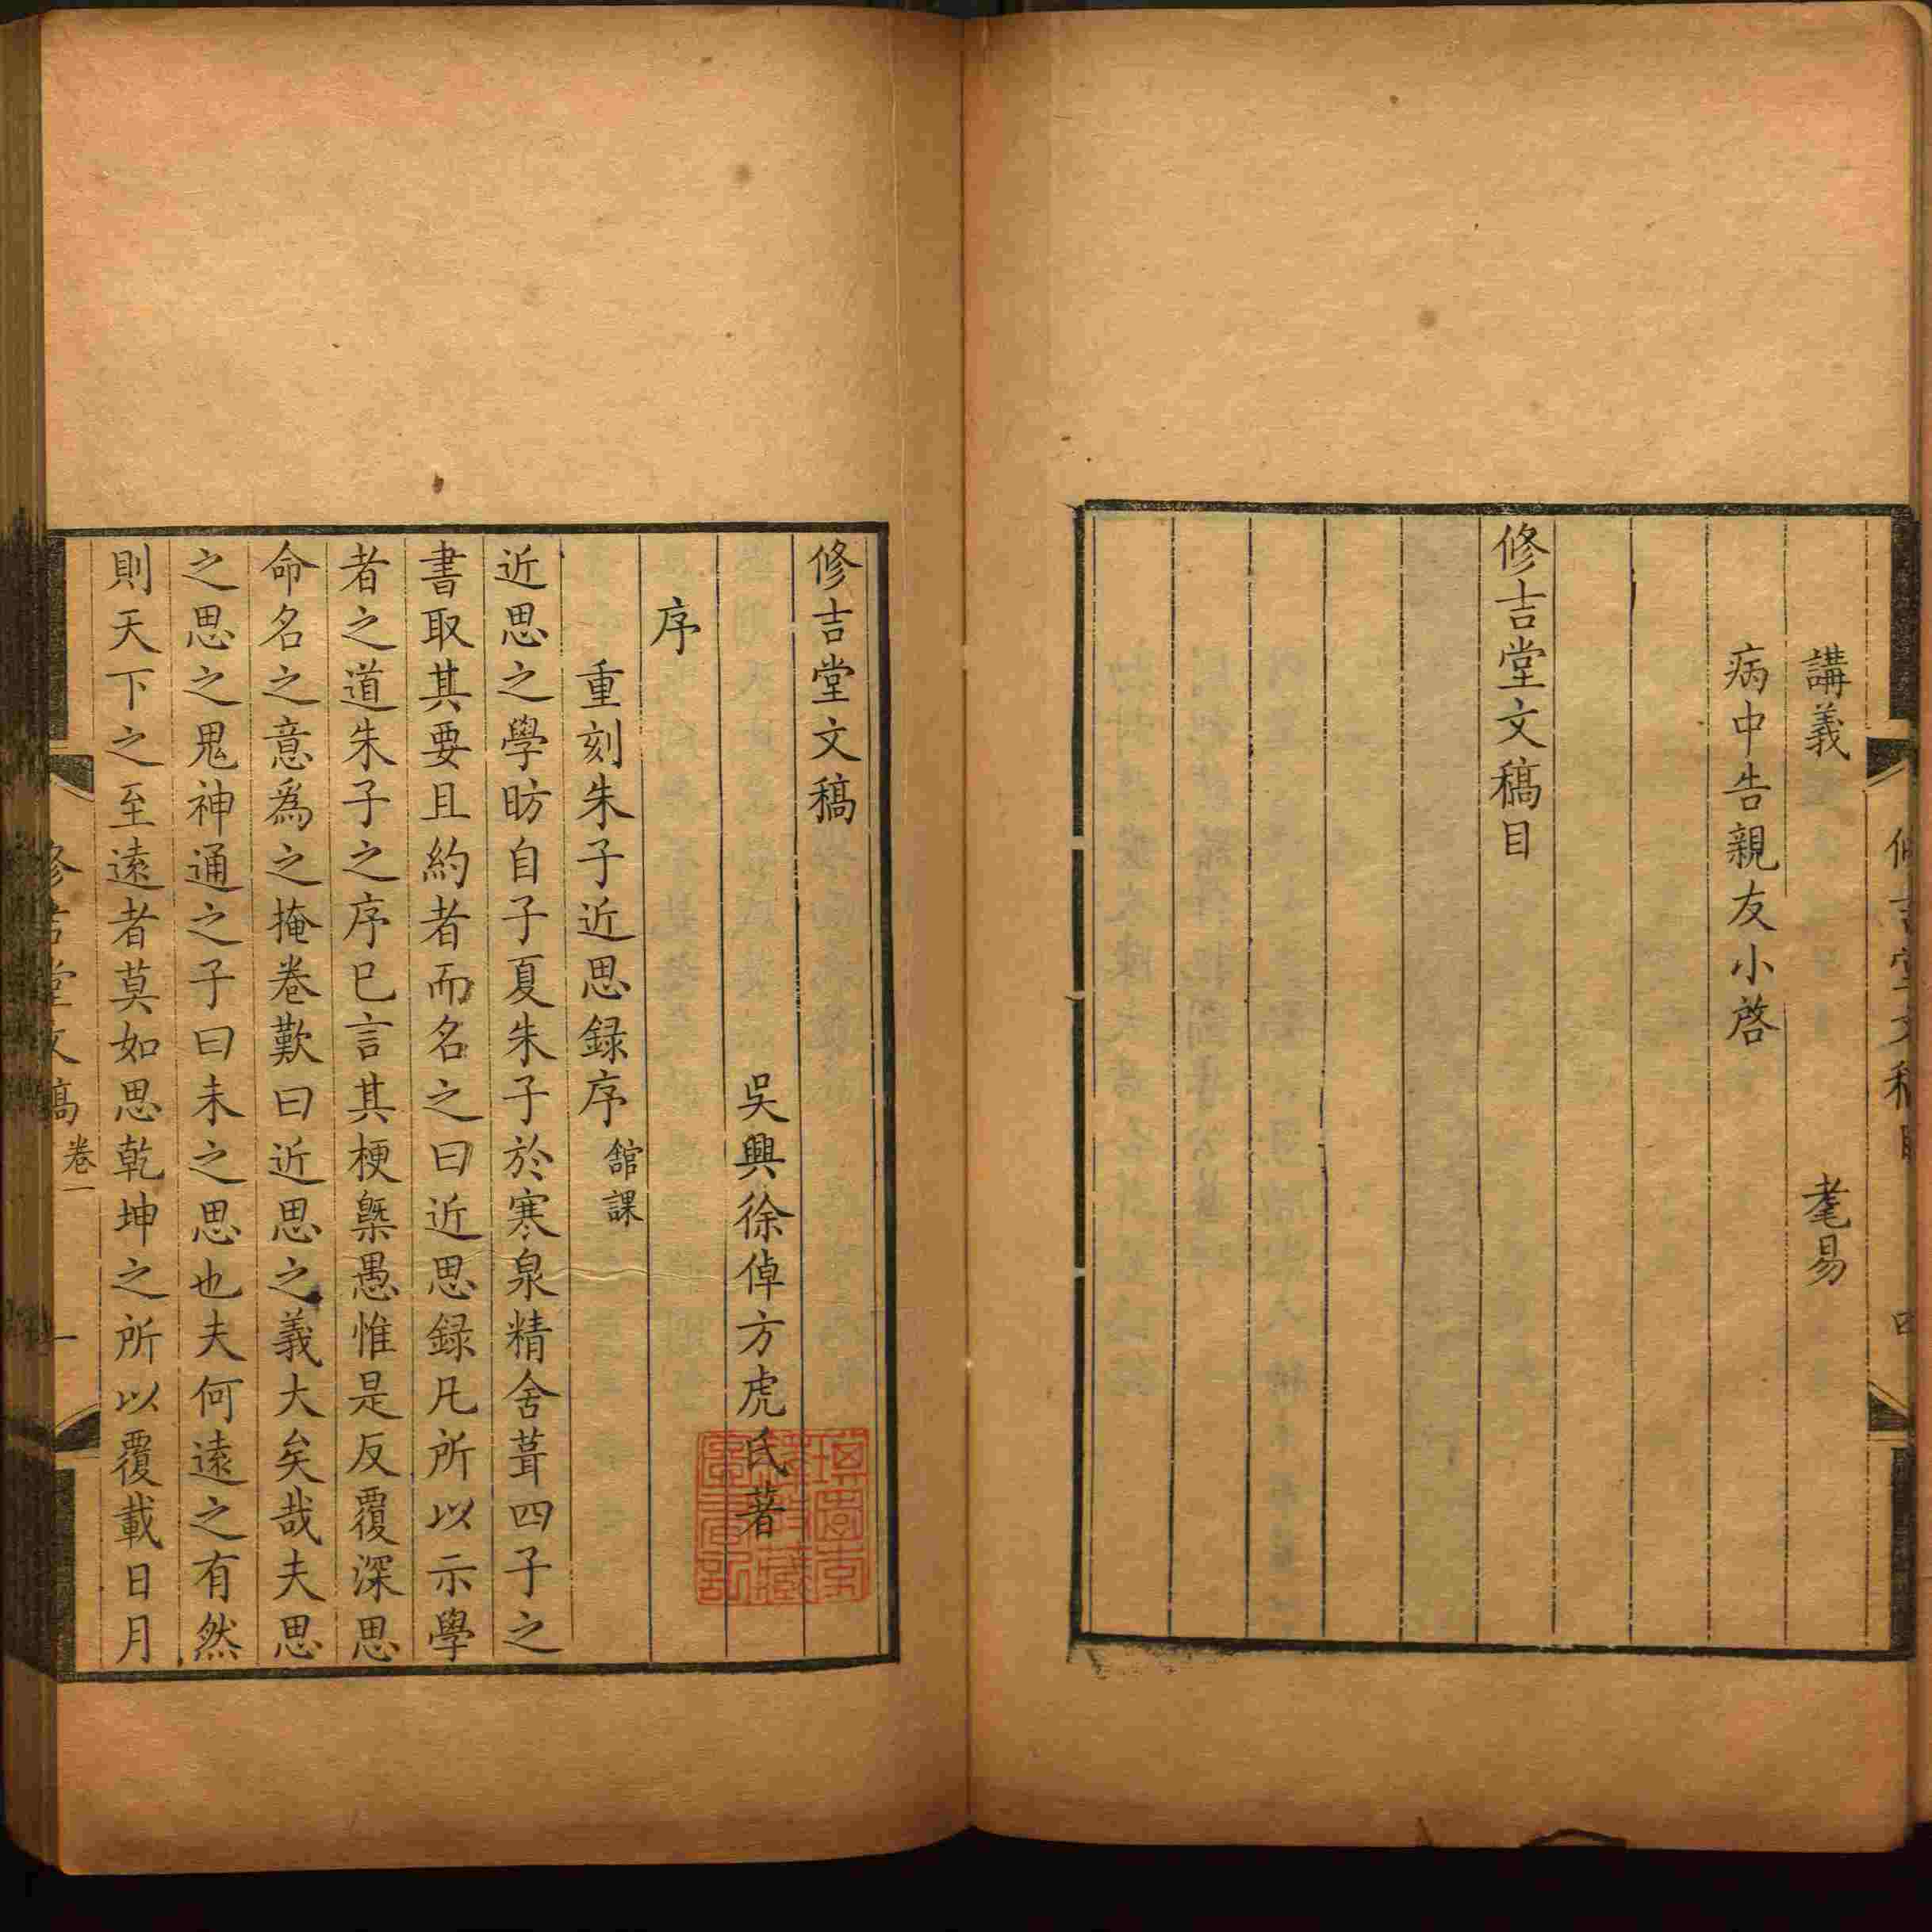 修吉堂文稿目
四
講義
耄易
病中告親友小啓
修吉堂文稿目
修吉堂文稿
吳興徐倬方虎氏著
序
重刻朱子近思録序 舘課
近思之學昉自子夏朱子於寒泉精舍葺四子之
書取其要且約者而名之曰近思録凡所以示學
者之道朱子之序已言其梗槩愚惟是反覆深思
命名之意爲之掩卷歎曰近思之義大矣哉夫思
之思之鬼神通之子曰未之思也夫何遠之有然
則天下之至遠者莫如思乾坤之所以覆載日月
修吉堂文稿 卷一
一